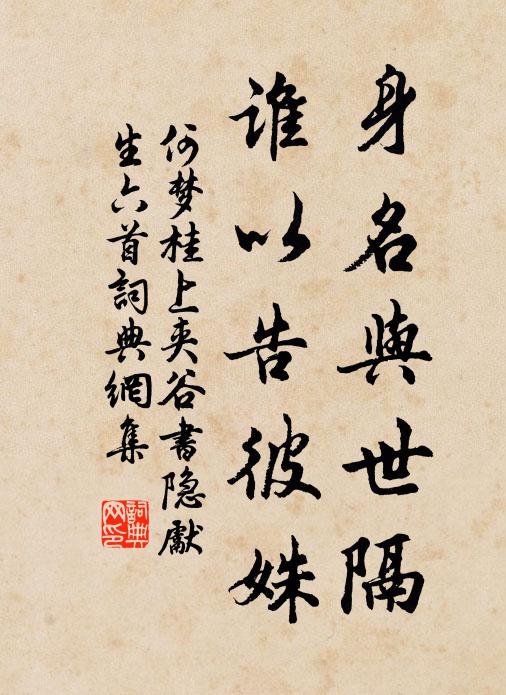 身名與世隔
誰以告彼姝
何梦桂上夾谷書隐獻
生六首詞典網集
詞典网印